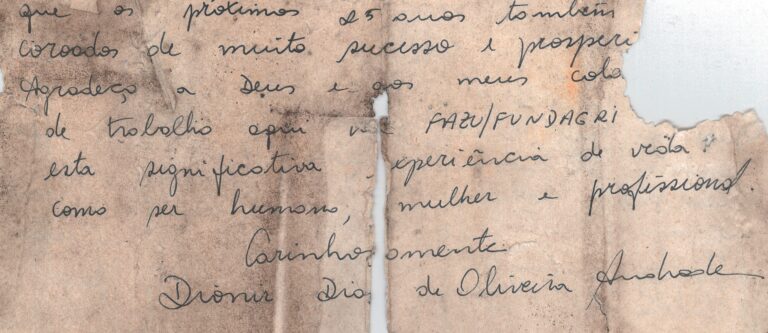 que os próximos 25 anos também
coroados de muito sucesso e prosperi
Agradeço a Deus e aos meus cola
de trabalho aqui na FAZU/FUNDAGRI
esta significativa experiência de vida
como ser humano, mulher e profissional.
Carinhosamente
Dionir Dias de Oliveira Andrade